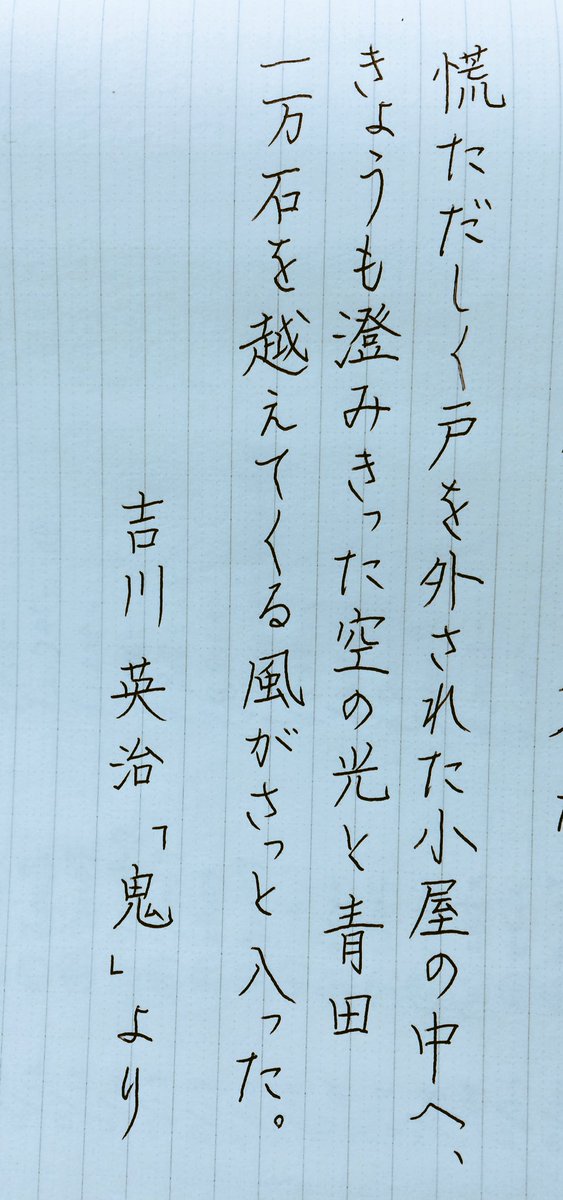 慌ただしく戸を外された小屋の中へ、
きょうも澄みきった空の光と青田
二万石を越えてくる風がさっと入った。
吉川英治「鬼」より